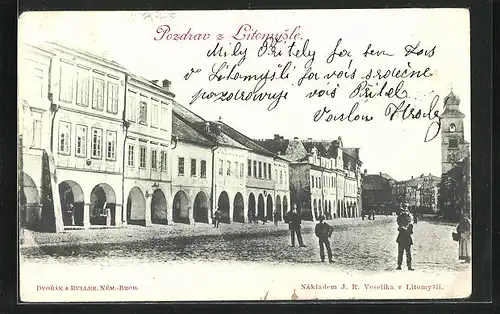 Pozdrav z Litomyšle.
Milý Příteli Ja sem
v Litomyšli Ja vás srdečne
pozdravuji vás Přítel
Vaslav
DVOŘÁK & RYLLER, NĚM.-BROD.
Nákladem J. R. Veselíka v Litomyšli.